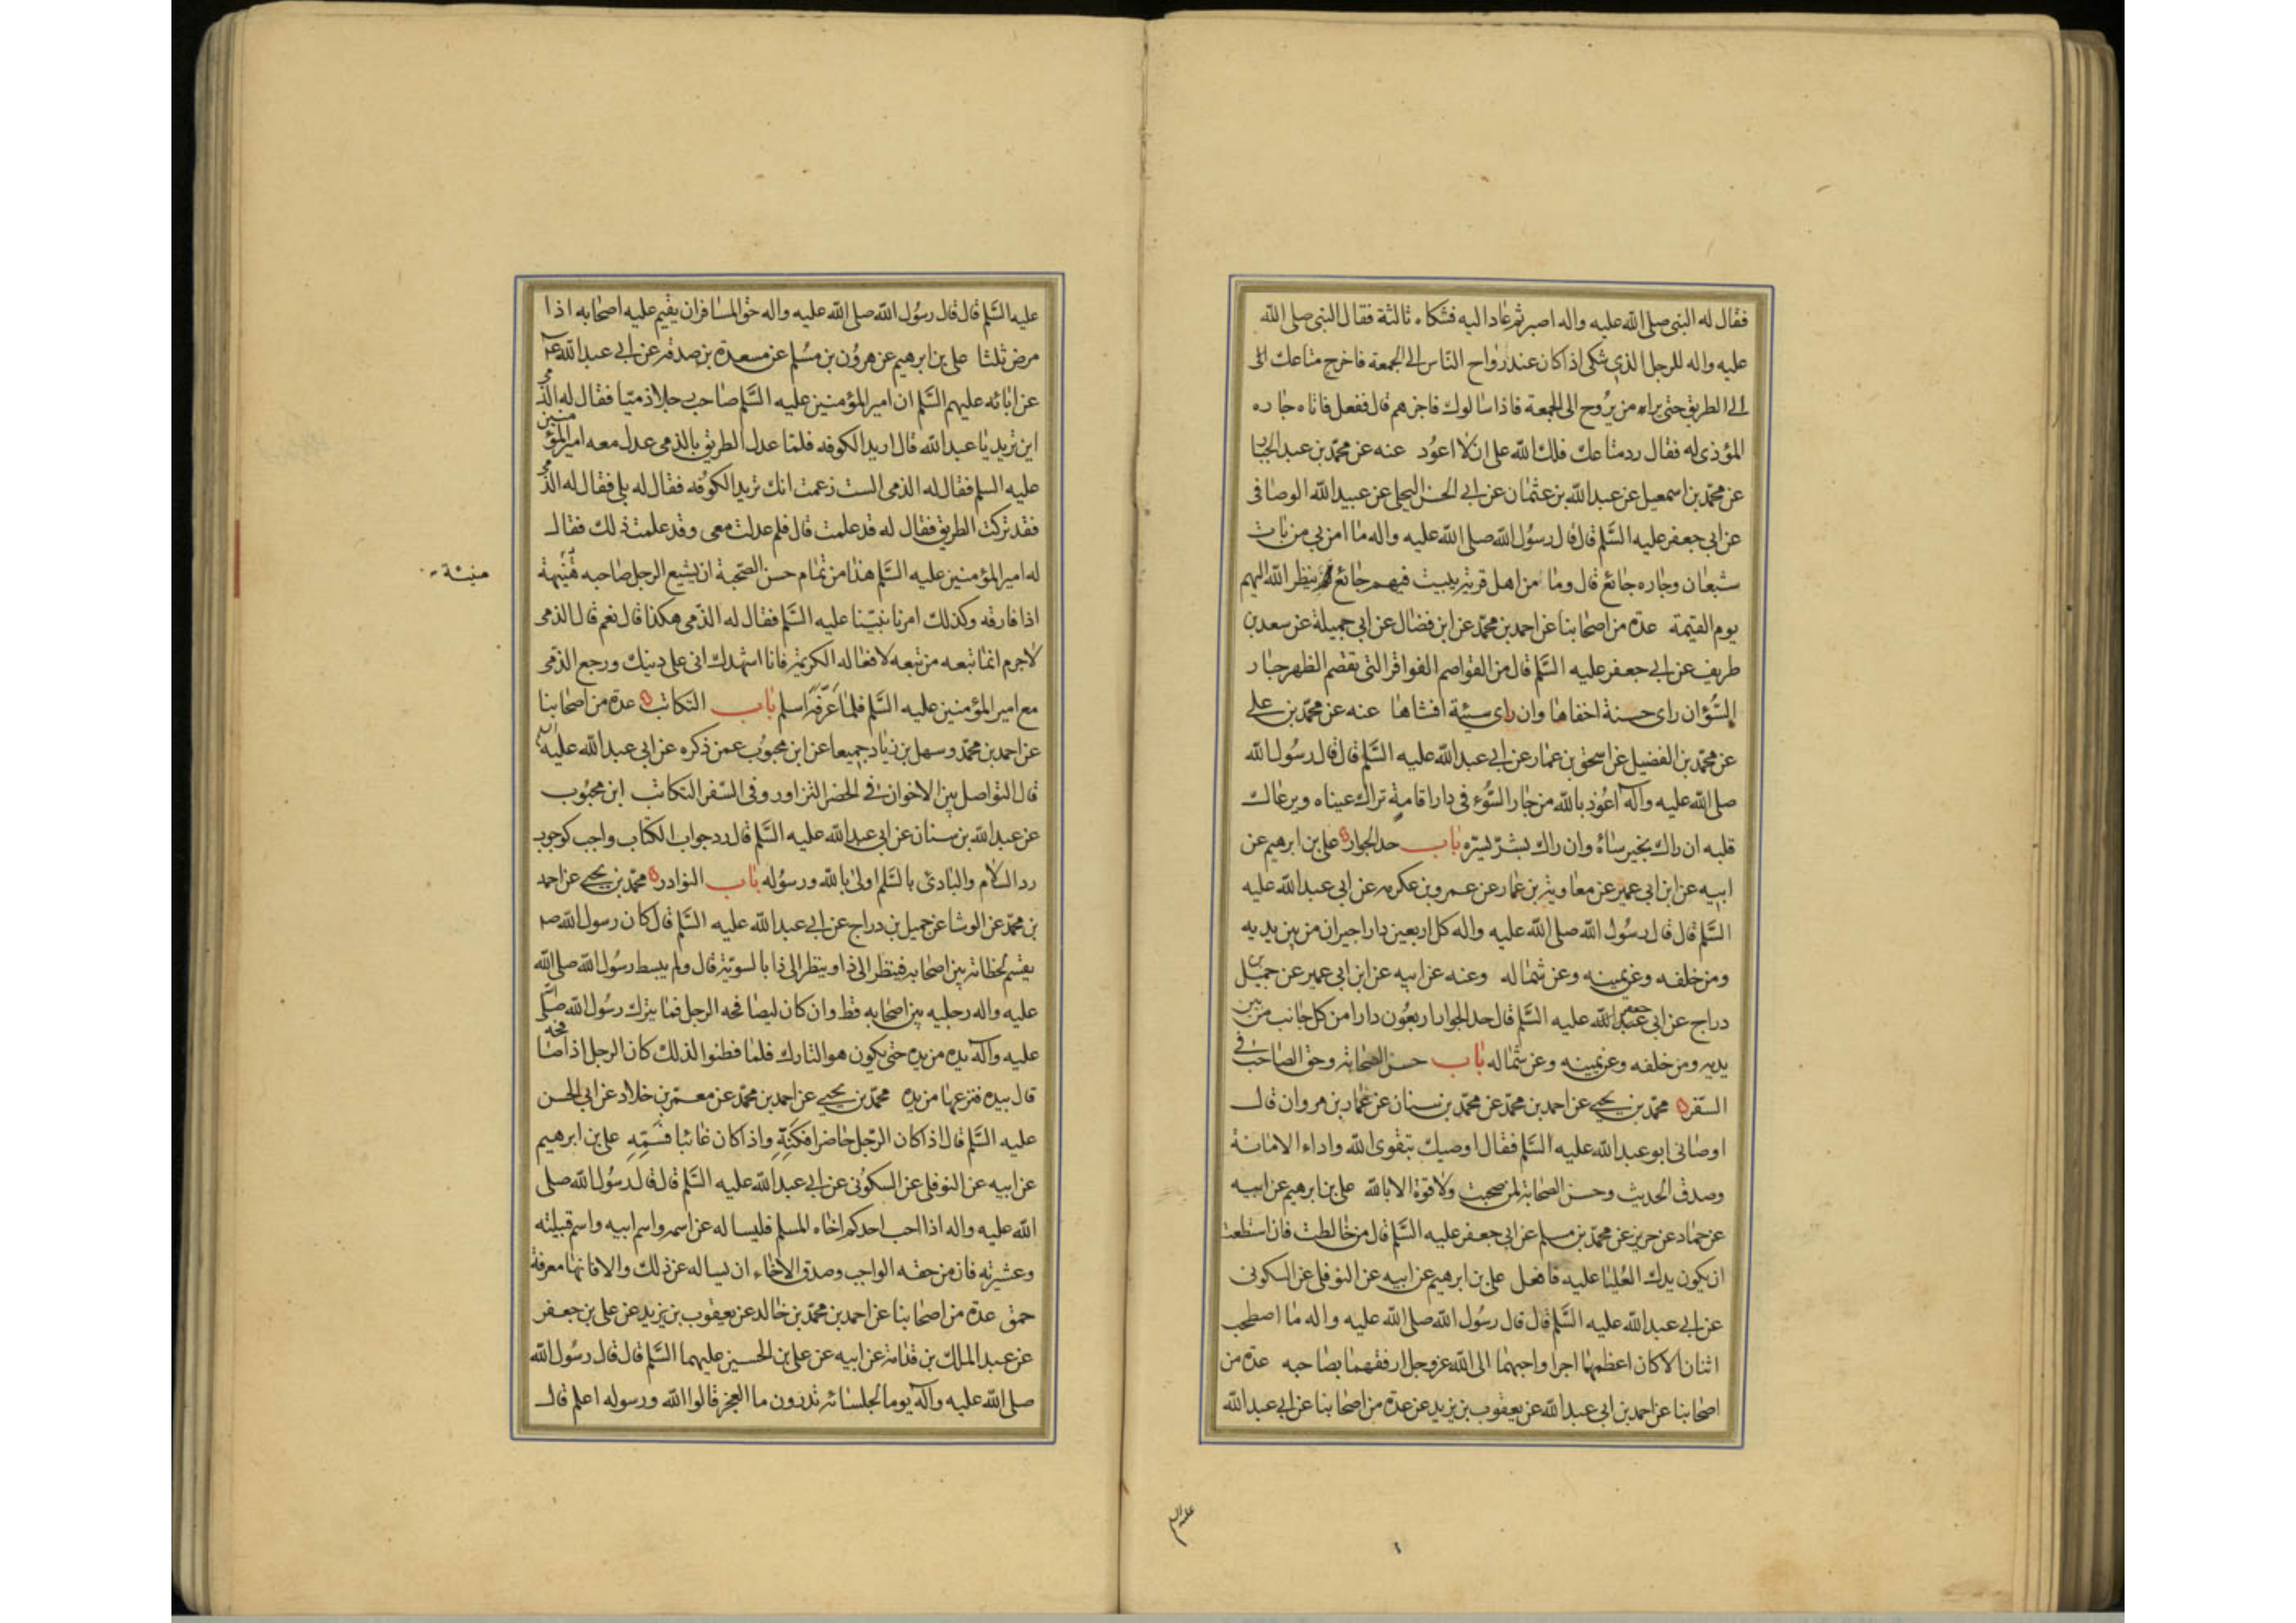 فقال له النبي صلى الله عليه واله اصبر ثم عاد اليه فشكاه ثالثة فقال النبي صلى الله
عليه واله للرجل الذي شكى اذا كان عند رواح الناس الى الجمعة فاخرج متاعك الى
الى الطريق حتى يراه من يروح الى الجمعة فاذا سالوك فاخبرهم قال ففعل فاتاه جاره
المؤذى له فقال رد متاعك فلك الله على ان لا اعود عنه عن محمد بن عبد الجبار
عن محمد بن اسمعيل عن عبد الله بن عثمان عن ابي الحسن البجلي عن عبيد الله الوصافى
عن ابى جعفر عليه السلم قال قال رسول الله صلى الله عليه واله ما امن بي من بات
شبعان وجاره جائع قال وما من اهل قرية يبيت فيهم جائع ينظر الله اليهم
يوم القيمة عدة من اصحابنا عن احمد بن محمد عن ابن فضال عن ابي جميلة عن سعد بن
طريف عن ابي جعفر عليه السلم قال من القواصم الفواقر التى تقصم الظهر جار
السوء ان راى حسنة اخفاها وان راى سيئة افشاها عنه عن محمد بن على
عن محمد بن الفضيل عن اسحق بن عمار عن ابي عبد الله عليه السلم قال قال رسول الله
صلى الله عليه وآله اعوذ بالله من جار السوء فى دار اقامة تراك عيناه ويرعاك
قلبه ان راك بخير ساءه وان راك بشر سره باب حد الجوار على بن ابرهيم عن
ابيه عن ابن ابي عمير عن معاوية بن عمار عن عمرو بن عكرمه عن ابى عبد الله عليه
السلم قال قال رسول الله صلى الله عليه واله كل اربعين دارا جيران من بين يديه
ومن خلفه وعن يمينه وعن شماله وعنه عن ابيه عن ابن ابي عمير عن جميل بن
دراج عن ابى جعفر عليه السلم قال حد الجوار اربعون دارا من كل جانب من بين
يديه ومن خلفه وعن يمينه وعن شماله باب حسن الصحابة وحق الصاحب في
السفر محمد بن يحيى عن احمد بن محمد عن محمد بن سنان عن عمار بن مروان قال
اوصانى ابو عبد الله عليه السلم فقال اوصيك بتقوى الله واداء الامانة
وصدق الحديث وحسن الصحابة لمن صحبت ولا قوة الا بالله على بن ابرهيم عن ابيه
عن حماد عن حريز عن محمد بن مسلم عن ابى جعفر عليه السلم قال من خالطت فان استطعت
ان يكون يدك العليا عليه فافعل على بن ابرهيم عن ابيه عن النوفلى عن السكونى
عن ابي عبد الله عليه السلم قال قال رسول الله صلى الله عليه واله ما اصطحب
اثنان الا كان اعظمهما اجرا واحبهما الى الله عز وجل ارفقهما بصاحبه عدة من
اصحابنا عن احمد بن ابى عبد الله عن يعقوب بن يزيد عن عدة من اصحابنا عن ابي عبد الله
عليه السلم
عليه السلم قال قال رسول الله صلى الله عليه واله حق المسافر ان يقيم عليه اصحابه اذا
مرض ثلثا على بن ابرهيم عن هرون بن مسلم عن مسعدة بن صدقة عن ابي عبد الله ع
عن ابائه عليهم السلم ان امير المؤمنين عليه السلم صاحب رجلا ذميا فقال له الذمى
اين تريد يا عبد الله قال اريد الكوفه فلما عدل الطريق بالذمى عدل معه امير المؤمنين
عليه السلم فقال له الذمى الست زعمت انك تريد الكوفه فقال له بلى فقال له الذمى
فقد تركت الطريق فقال له قد علمت قال فلم عدلت معى وقد علمت ذلك فقال
له امير المؤمنين عليه السلم هذا من تمام حسن الصحبة ان يشيع الرجل صاحبه هنيهة
اذا فارقه وكذلك امرنا نبينا عليه السلم فقال له الذمى هكذا قال نعم قال الذمى
لاجرم انما تبعه من تبعه لافعاله الكريمة فانا اشهدك انى على دينك ورجع الذمى
مع امير المؤمنين عليه السلم فلما عرفه اسلم باب التكاتب عدة من اصحابنا
عن احمد بن محمد وسهل بن زياد جميعا عن ابن محبوب عمن ذكره عن ابى عبد الله عليه السلم
قال التواصل بين الاخوان في الحضر التزاور وفى السفر التكاتب ابن محبوب
عن عبد الله بن سنان عن ابى عبد الله عليه السلم قال رد جواب الكتاب واجب كوجوب
رد السلام والبادئ بالسلم اولى بالله ورسوله باب النوادر محمد بن يحيى عن احمد
بن محمد عن الوشا عن جميل بن دراج عن ابي عبد الله عليه السلم قال كان رسول الله ص
يقسم لحظاته بين اصحابه فينظر الى ذا وينظر الى ذا بالسوية قال ولم يبسط رسول الله صلى الله
عليه واله رجليه بين اصحابه قط وان كان ليصافحه الرجل فما يترك رسول الله صلى الله
عليه وآله يده من يده حتى يكون هو التارك فلما فطنوا لذلك كان الرجل اذا صافحه
قال بيده فنزعها من يده محمد بن يحيى عن احمد بن محمد عن معمر بن خلاد عن ابى الحسن
عليه السلم قال اذا كان الرجل حاضرا فكنه واذا كان غائبا فسمه على بن ابرهيم
عن ابيه عن النوفلى عن السكونى عن ابي عبد الله عليه السلم قال قال رسول الله صلى
الله عليه واله اذا احب احدكم اخاه المسلم فليساله عن اسمه واسم ابيه واسم قبيلته
وعشيرته فان من حقه الواجب وصدق الاخاء ان يساله عن ذلك والا فانها معرفة
حمق عدة من اصحابنا عن احمد بن محمد بن خالد عن يعقوب بن يزيد عن على بن جعفر
عن عبد الملك بن قدامة عن ابيه عن على بن الحسين عليهما السلم قال قال رسول الله
صلى الله عليه وآله يوما لجلسائه تدرون ما العجز قالوا الله ورسوله اعلم قال